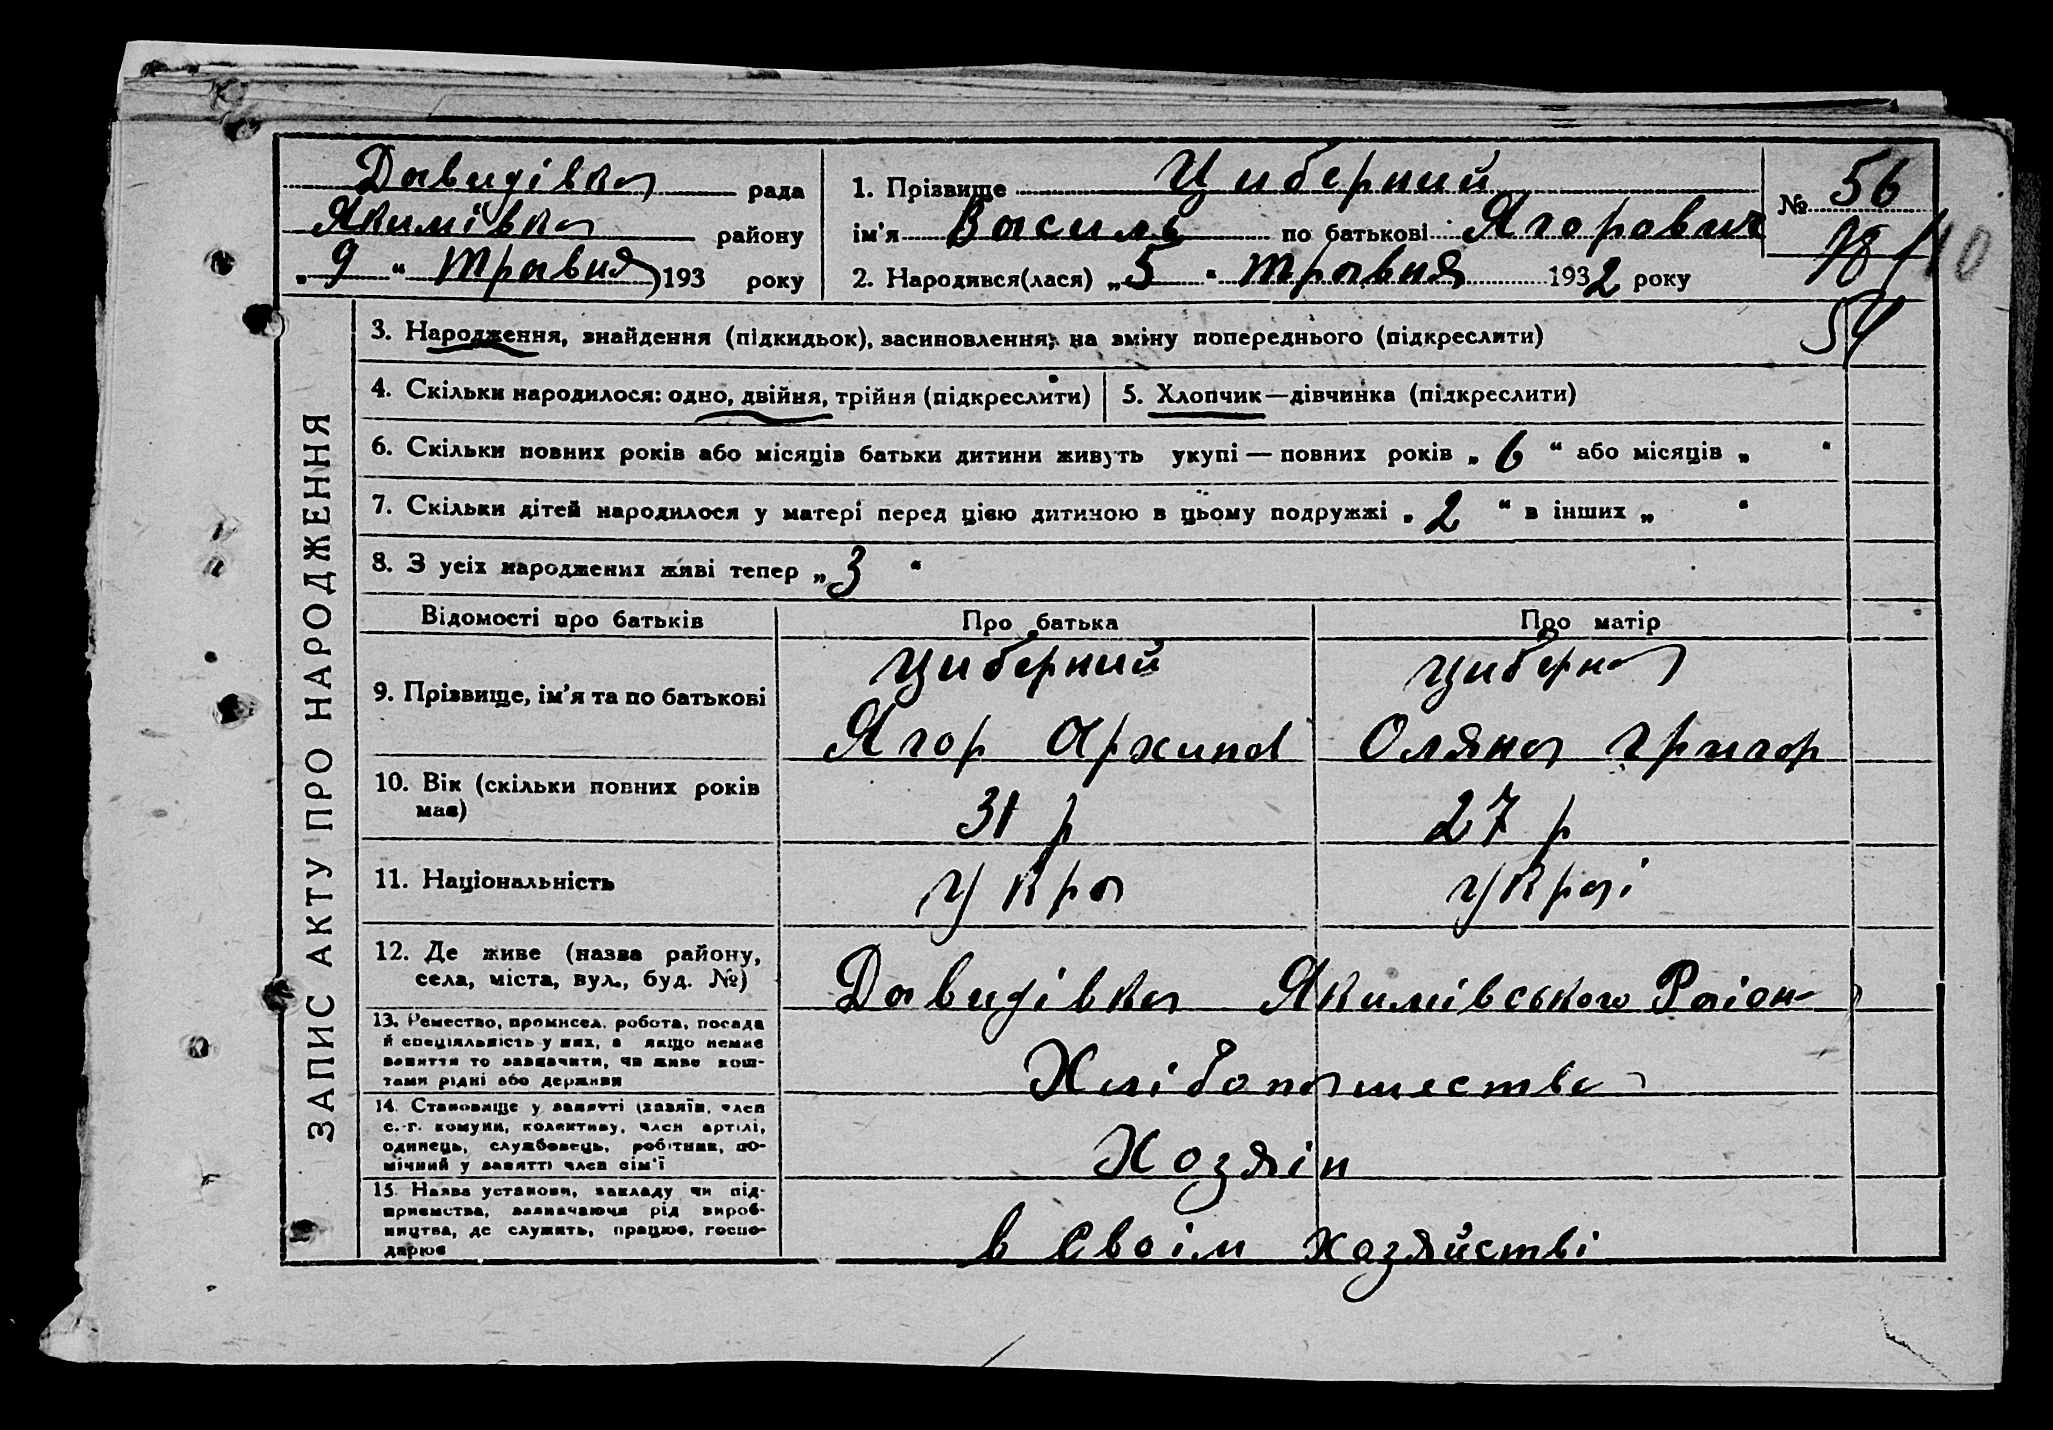 Давидівка рада
Якимівка району
„ 9 “ травня 193 року
1. Прізвище Циберний
ім'я Василь по батькові Ягорович
2. Народився(лася) „ 5 “ травня 1932 року
№ 56
10
54
ЗАПИС АКТУ ПРО НАРОДЖЕННЯ
3. Народження, знайдення (підкидьок), засиновлення; на зміну попереднього (підкреслити)
4. Скільки народилося: одно, двійня, трійня (підкреслити)
5. Хлопчик—дівчинка (підкреслити)
6. Скільки повних років або місяців батьки дитини живуть укупі — повних років „ 6 “ або місяців „ “
7. Скільки дітей народилося у матері перед цією дитиною в цьому подружжі „ 2 “ в інших „ “
8. З усіх народжених живі тепер „ 3 “
Відомості про батьків Про батька Про матір
9. Прізвище, ім'я та по батькові
Циберний
Ягор Архипов
Циберна
Оляна Григор
10. Вік (скільки повних років
має)
31 р
27 р
11. Національність
укра
украі
12. Де живе (назва району,
села, міста, вул., буд. №)
Давидівка Якимівського Раіона
13. Ремество, промисел, робота, посада
й спеціяльність у них, а якщо немає
заняття то зазначити, чи живе кош-
тами рідні або держави
Хлібопашество
14. Становище у занятті (хазяїн, член
с.-г. комуни, колективу, член артілі,
одинець, службовець, робітник, по-
мічний у занятті член сім'ї
Хозяін
15. Назва установи, закладу чи під-
приємства, зазначаючи рід вироб-
ництва, де служить, працює, госпо-
дарює
в своім хазяйстві